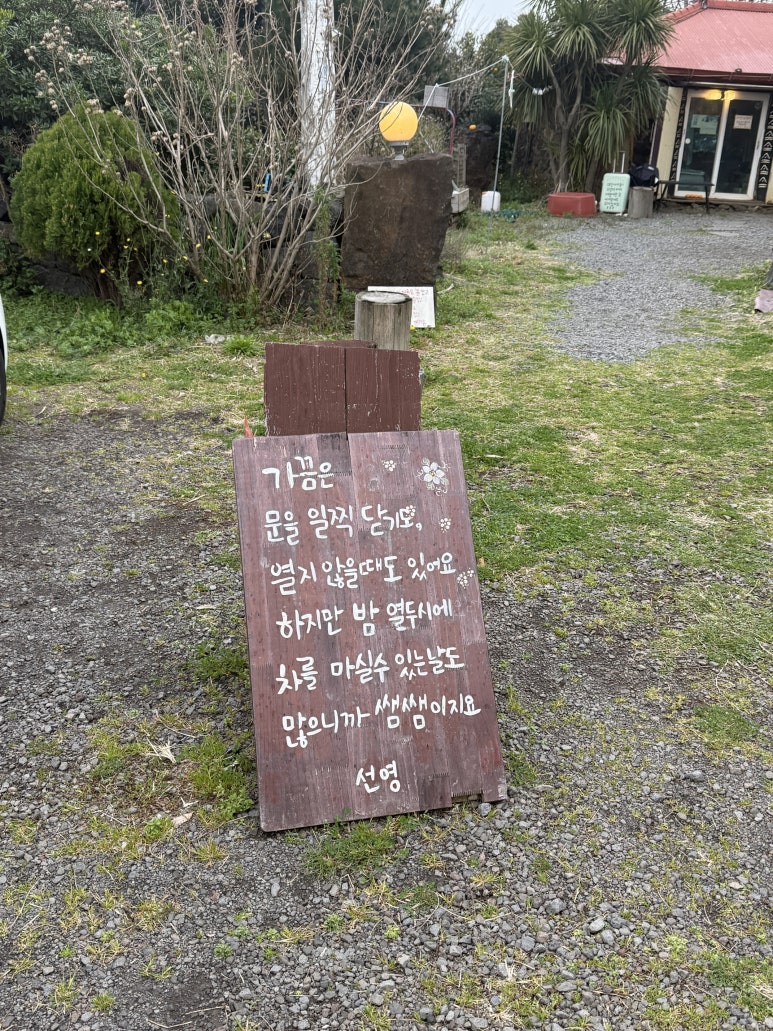 가끔은
문을 일찍 닫기도,
열지 않을때도 있어요
하지만 밤 열두시에
차를 마실수 있는날도
많으니까 쌤쌤이지요
선영